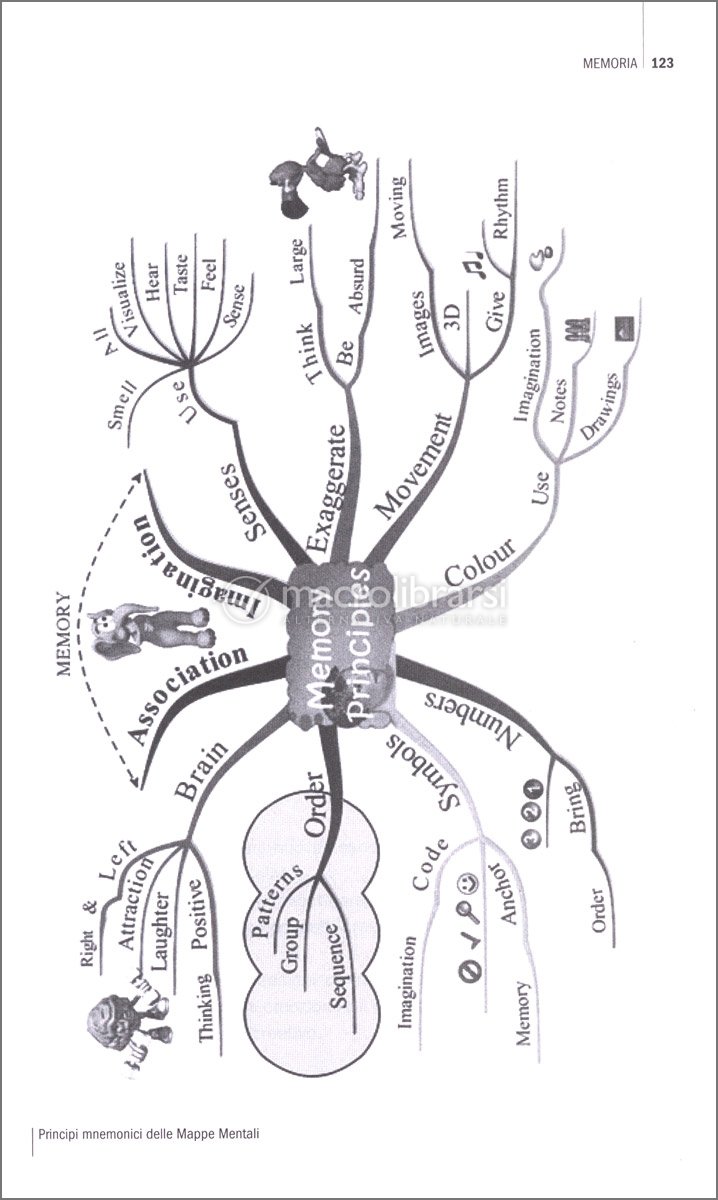 MEMORIA 123
MEMORY
Memory
Principles
Imagination
Senses
Use
Smell
All
Visualize
Hear
Taste
Feel
Sense
Exaggerate
Think
Large
Be
Absurd
Movement
Images
Moving
3D
Give
Rhythm
Colour
Use
Imagination
Notes
Drawings
Numbers
3 2 1
Bring
Order
Symbols
Code
Imagination
Anchor
Memory
Order
Patterns
Group
Sequence
Brain
Left
Right &
Attraction
Laughter
Positive
Thinking
Association
macrolibrarsi
ALTERNATIVA NATURALE
Principi mnemonici delle Mappe Mentali